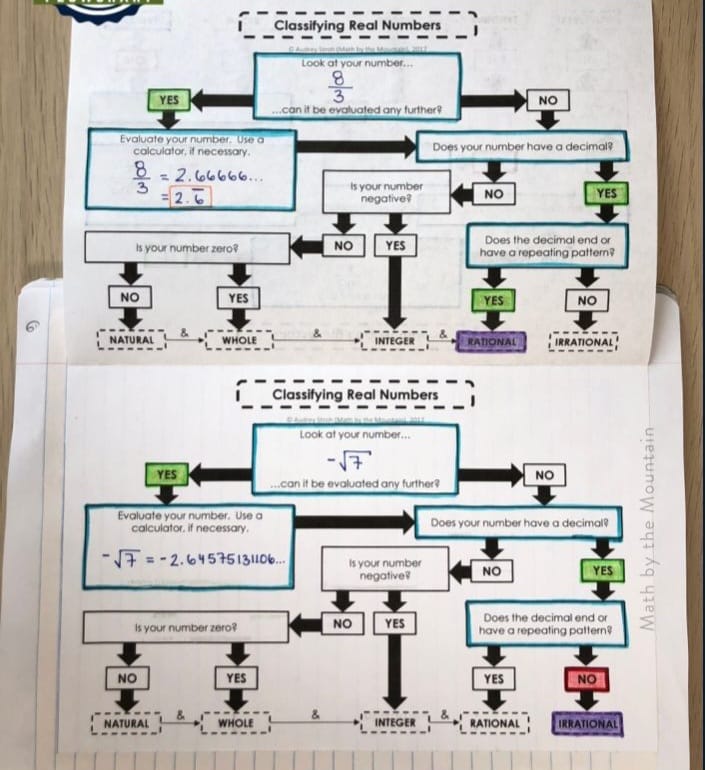 FLOWCHART
Classifying Real Numbers
© Audrey Stroh (Math by the Mountain), 2017
Look at your number...
8
3
...can it be evaluated any further?
YES
NO
Evaluate your number. Use a
calculator, if necessary.
8
3
= 2.66666...
= 2.6̅
Does your number have a decimal?
Is your number
negative?
NO
YES
Is your number zero?
NO
YES
Does the decimal end or
have a repeating pattern?
NO
YES
YES
NO
NATURAL
&
WHOLE
&
INTEGER
&
RATIONAL
IRRATIONAL
Classifying Real Numbers
Look at your number...
-√7
...can it be evaluated any further?
YES
NO
Evaluate your number. Use a
calculator, if necessary.
-√7 = -2.64575131106...
Does your number have a decimal?
Is your number
negative?
NO
YES
Is your number zero?
NO
YES
Does the decimal end or
have a repeating pattern?
NO
YES
YES
NO
NATURAL
&
WHOLE
&
INTEGER
&
RATIONAL
IRRATIONAL
Math by the Mountain